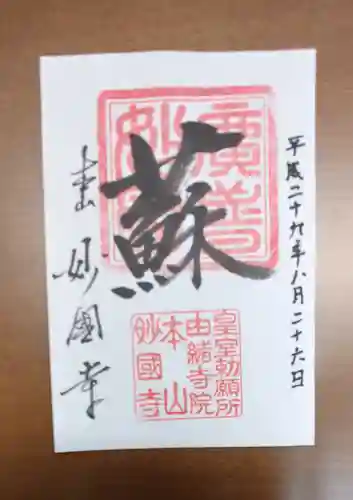 平成二十九年八月二十六日
蘇
皇室勅願所
由緒寺院
本山
妙國寺
妙國寺